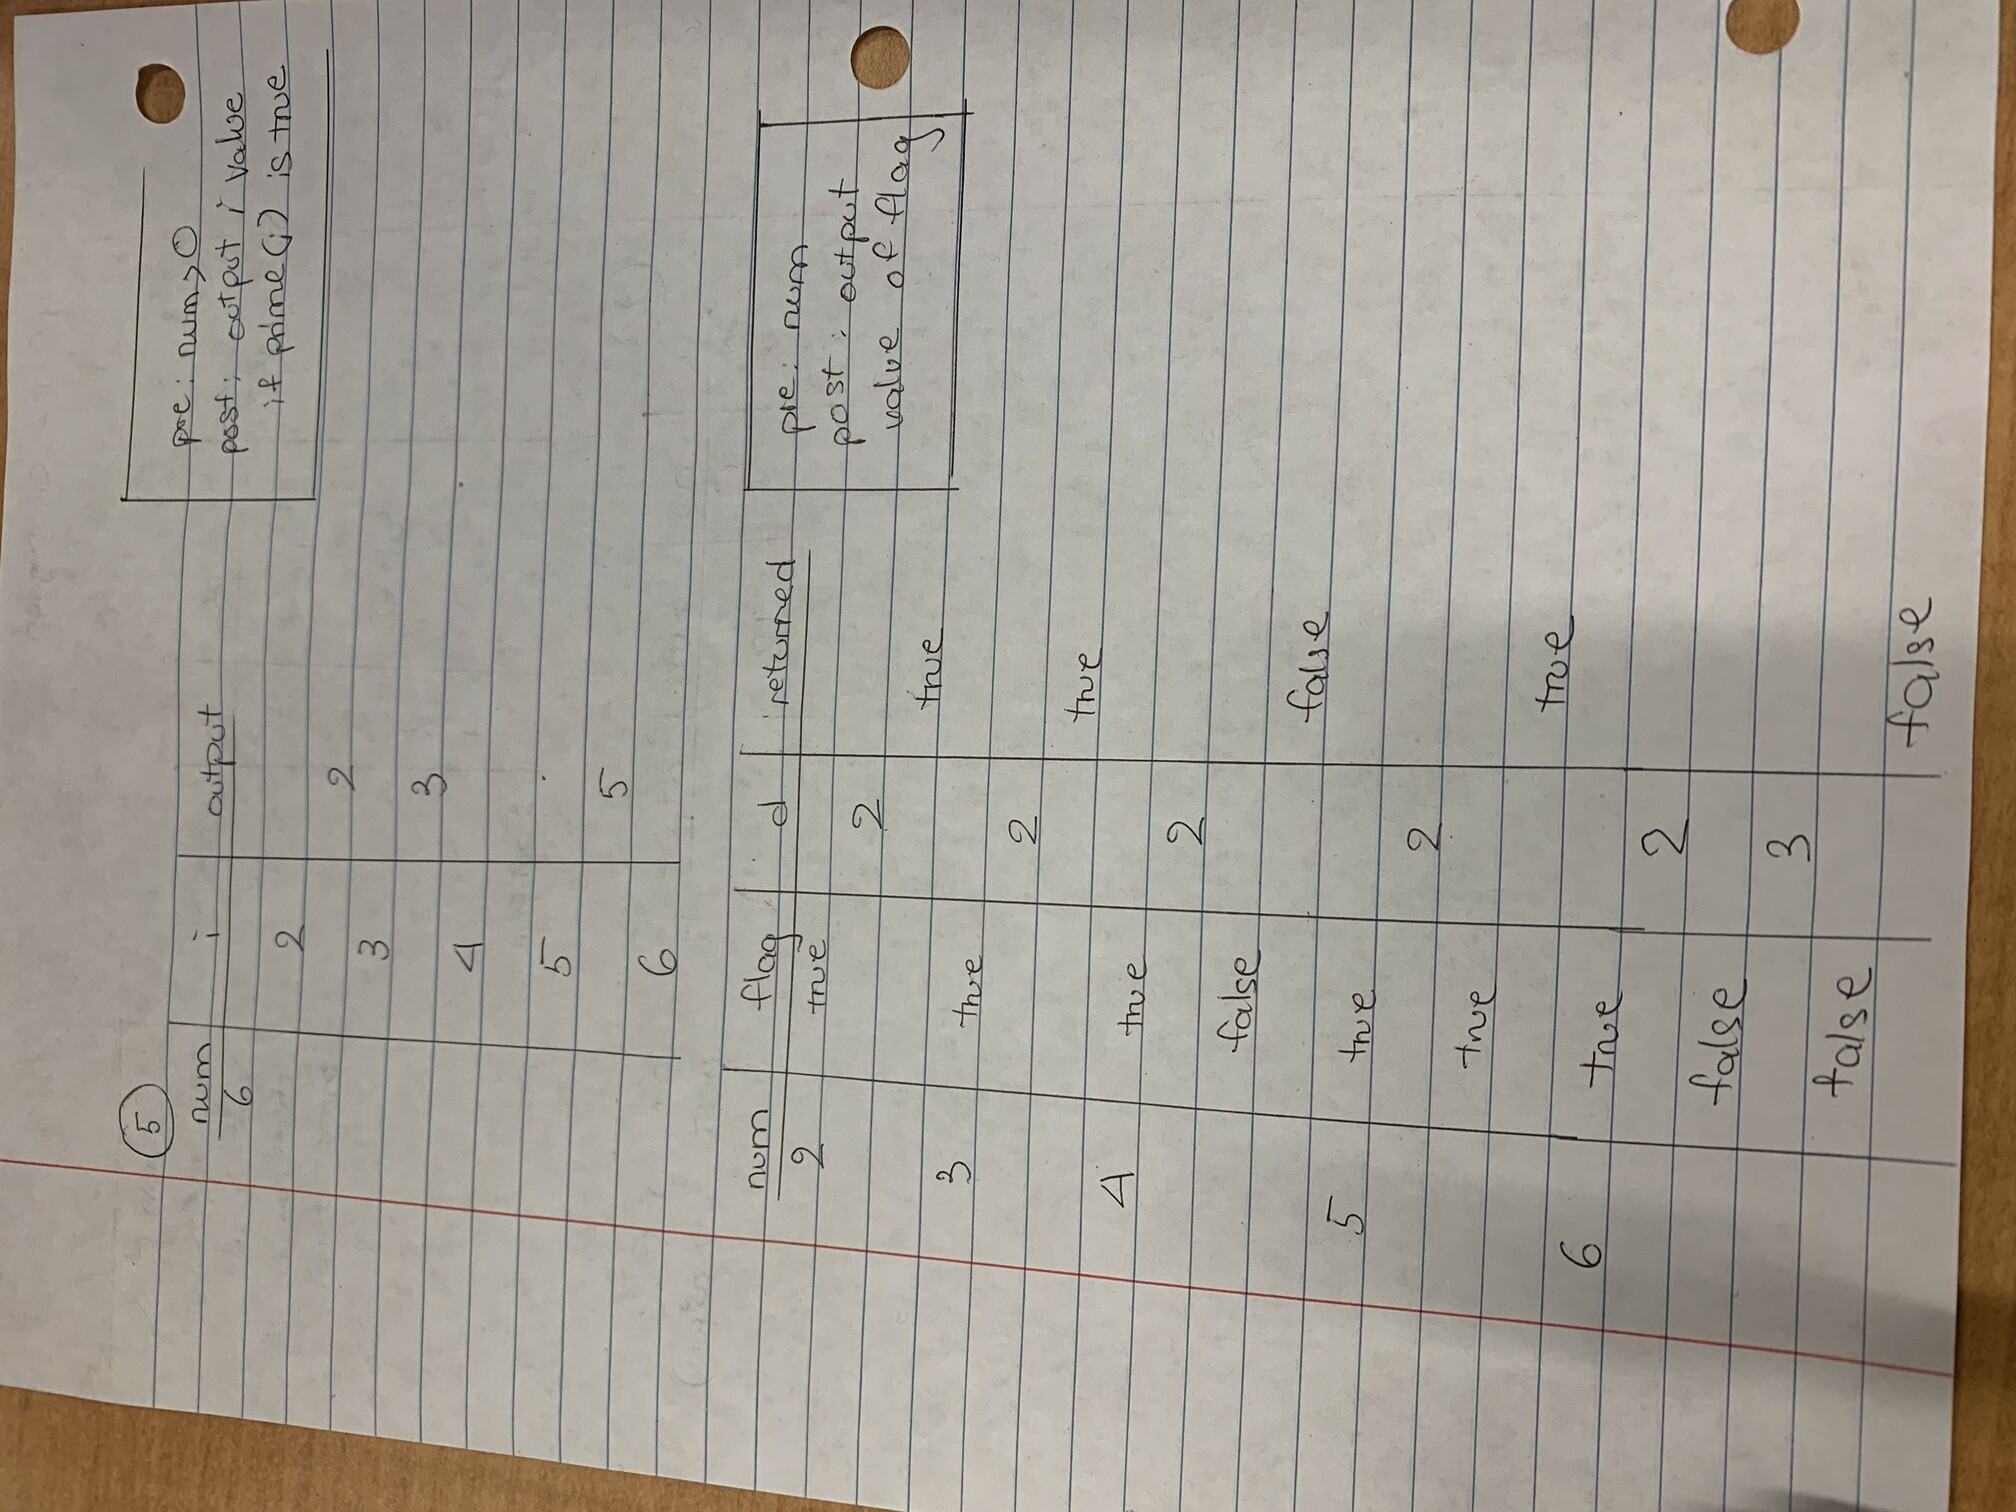 5
num i output
6
2
2
3
3
4
5
5
6
pre: num>0
post: output i value
if prime(i) is true
num flag d returned
2 true
2
true
3 true
2
true
4 true
2
false
false
5 true
2
true
true
6 true
2
false
3
false
false
pre: num
post: output
value of flag